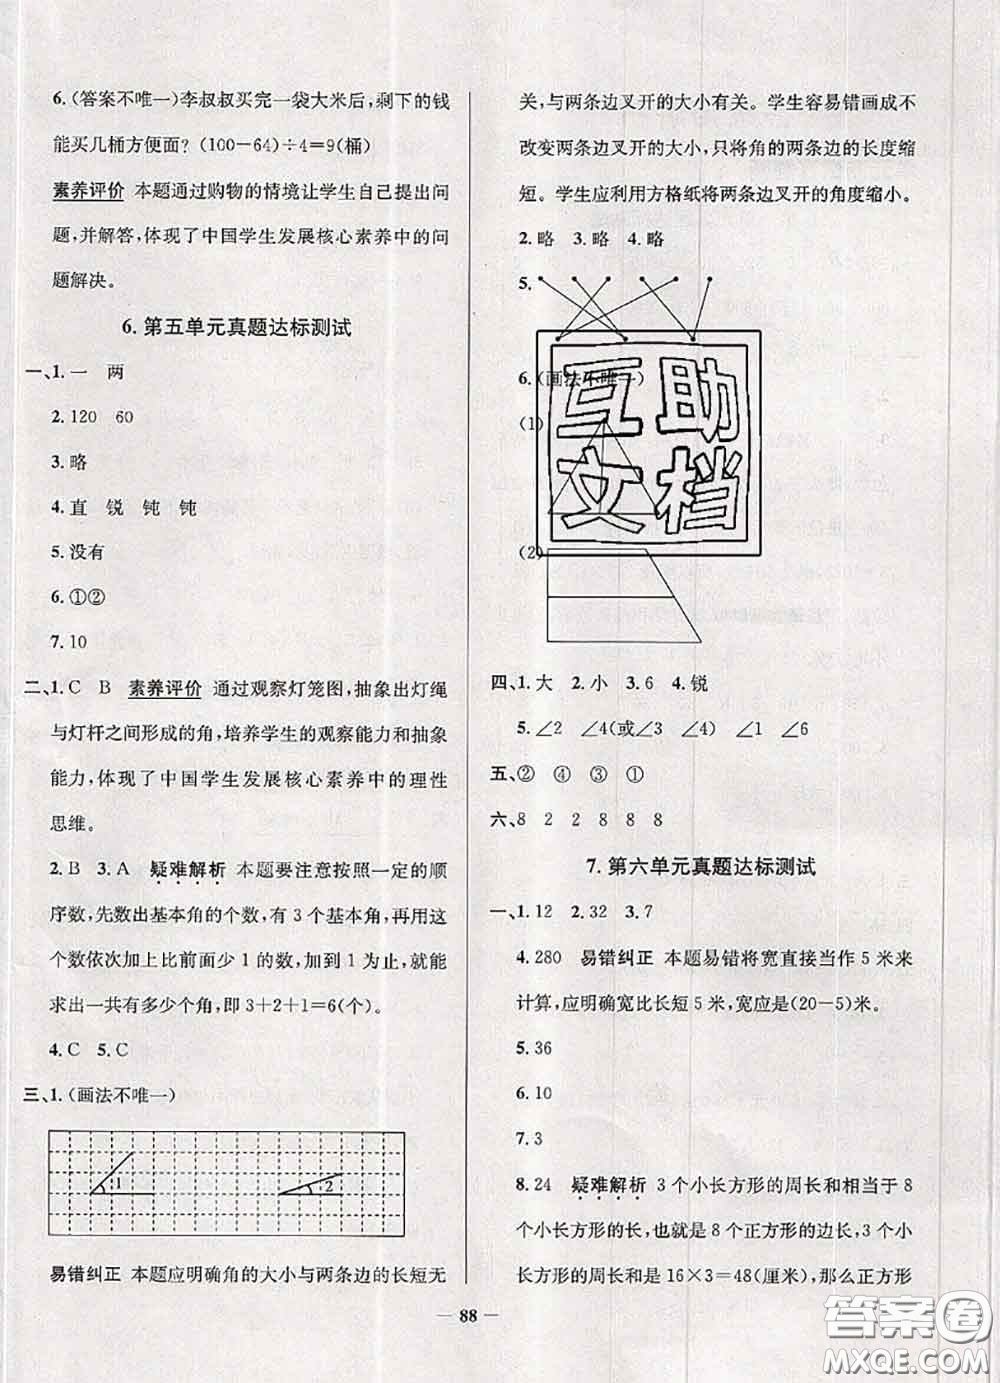 6.(答案不唯一)李叔叔买完一袋大米后,剩下的钱
能买几桶方便面? (100-64)÷4=9(桶)
素养评价 本题通过购物的情境让学生自己提出问
题,并解答,体现了中国学生发展核心素养中的问
题解决。
6.第五单元真题达标测试
一、1.一 两
2.120 60
3.略
4.直 锐 钝 钝
5.没有
6.①②
7.10
二、1.C B 素养评价 通过观察灯笼图,抽象出灯绳
与灯杆之间形成的角,培养学生的观察能力和抽象
能力,体现了中国学生发展核心素养中的理性
思维。
2.B 3.A 疑难解析 本题要注意按照一定的顺
序数,先数出基本角的个数,有3个基本角,再用这
个数依次加上比前面少1的数,加到1为止,就能
求出一共有多少个角,即3+2+1=6(个)。
4.C 5.C
三、1.(画法不唯一)
1 2
易错纠正 本题应明确角的大小与两条边的长短无
关,与两条边叉开的大小有关。学生容易错画成不
改变两条边叉开的大小,只将角的两条边的长度缩
短。学生应利用方格纸将两条边叉开的角度缩小。
2.略 3.略 4.略
5.
6.(画法不唯一)
(1)
(2)
互助
文档
四、1.大 2.小 3.6 4.锐
5.∠2 ∠4(或∠3 ∠4) ∠1 ∠6
五、② ④ ③ ①
六、8 2 2 8 8 8
7.第六单元真题达标测试
一、1.12 2.32 3.7
4.280 易错纠正 本题易错将宽直接当作5米来
计算,应明确宽比长短5米,宽应是(20-5)米。
5.36
6.10
7.3
8.24 疑难解析 3个小长方形的周长和相当于8
个小长方形的长,也就是8个正方形的边长,3个小
长方形的周长和是16×3=48(厘米),那么正方形
88
答案卷
MXQE.COM